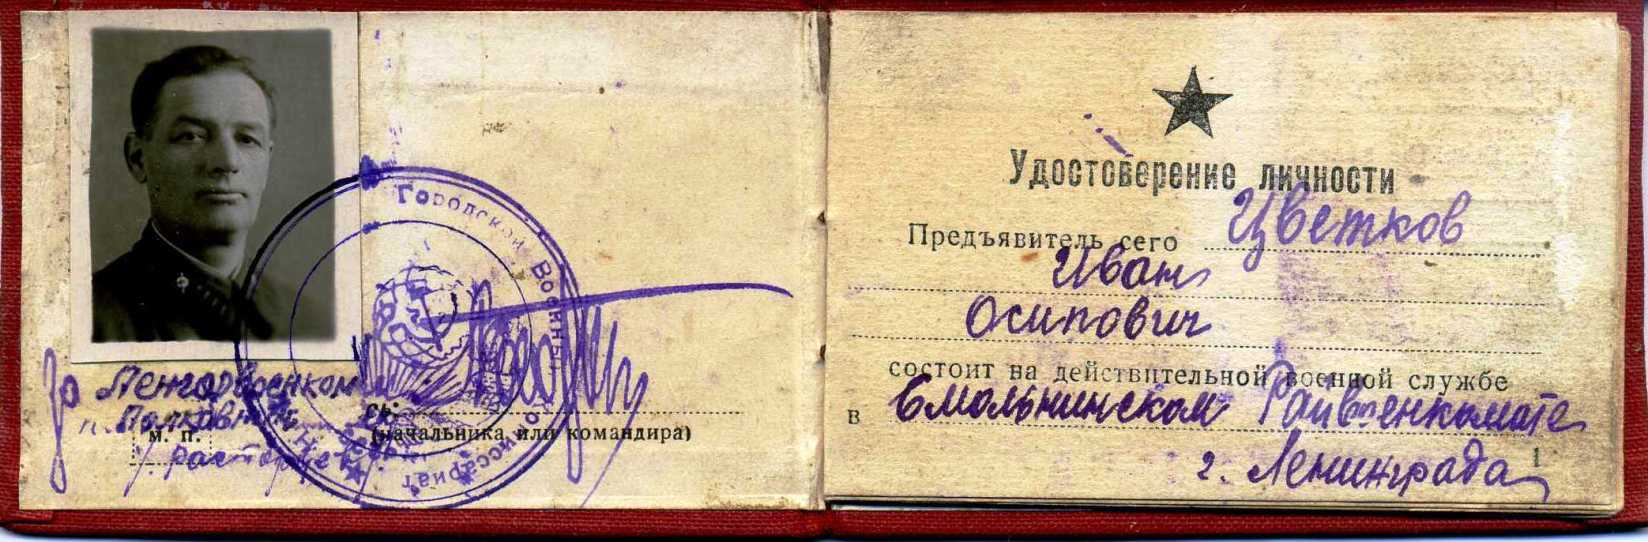 Городской Военный
Комиссариат
За Ленгорвоенком
Полковник
М. П.
(начальника или командира)
Удостоверение личности
Предъявитель сего Цветков
Иван
Осипович
состоит на действительной военной службе
в Смольнинском Райвоенкомате
г. Ленинграда
1